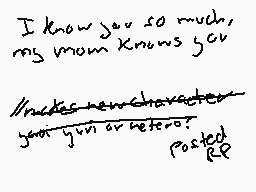 I know you so much,
my mom knows you
//makes new character
yaoi yuri or hetero?
Posted
RP